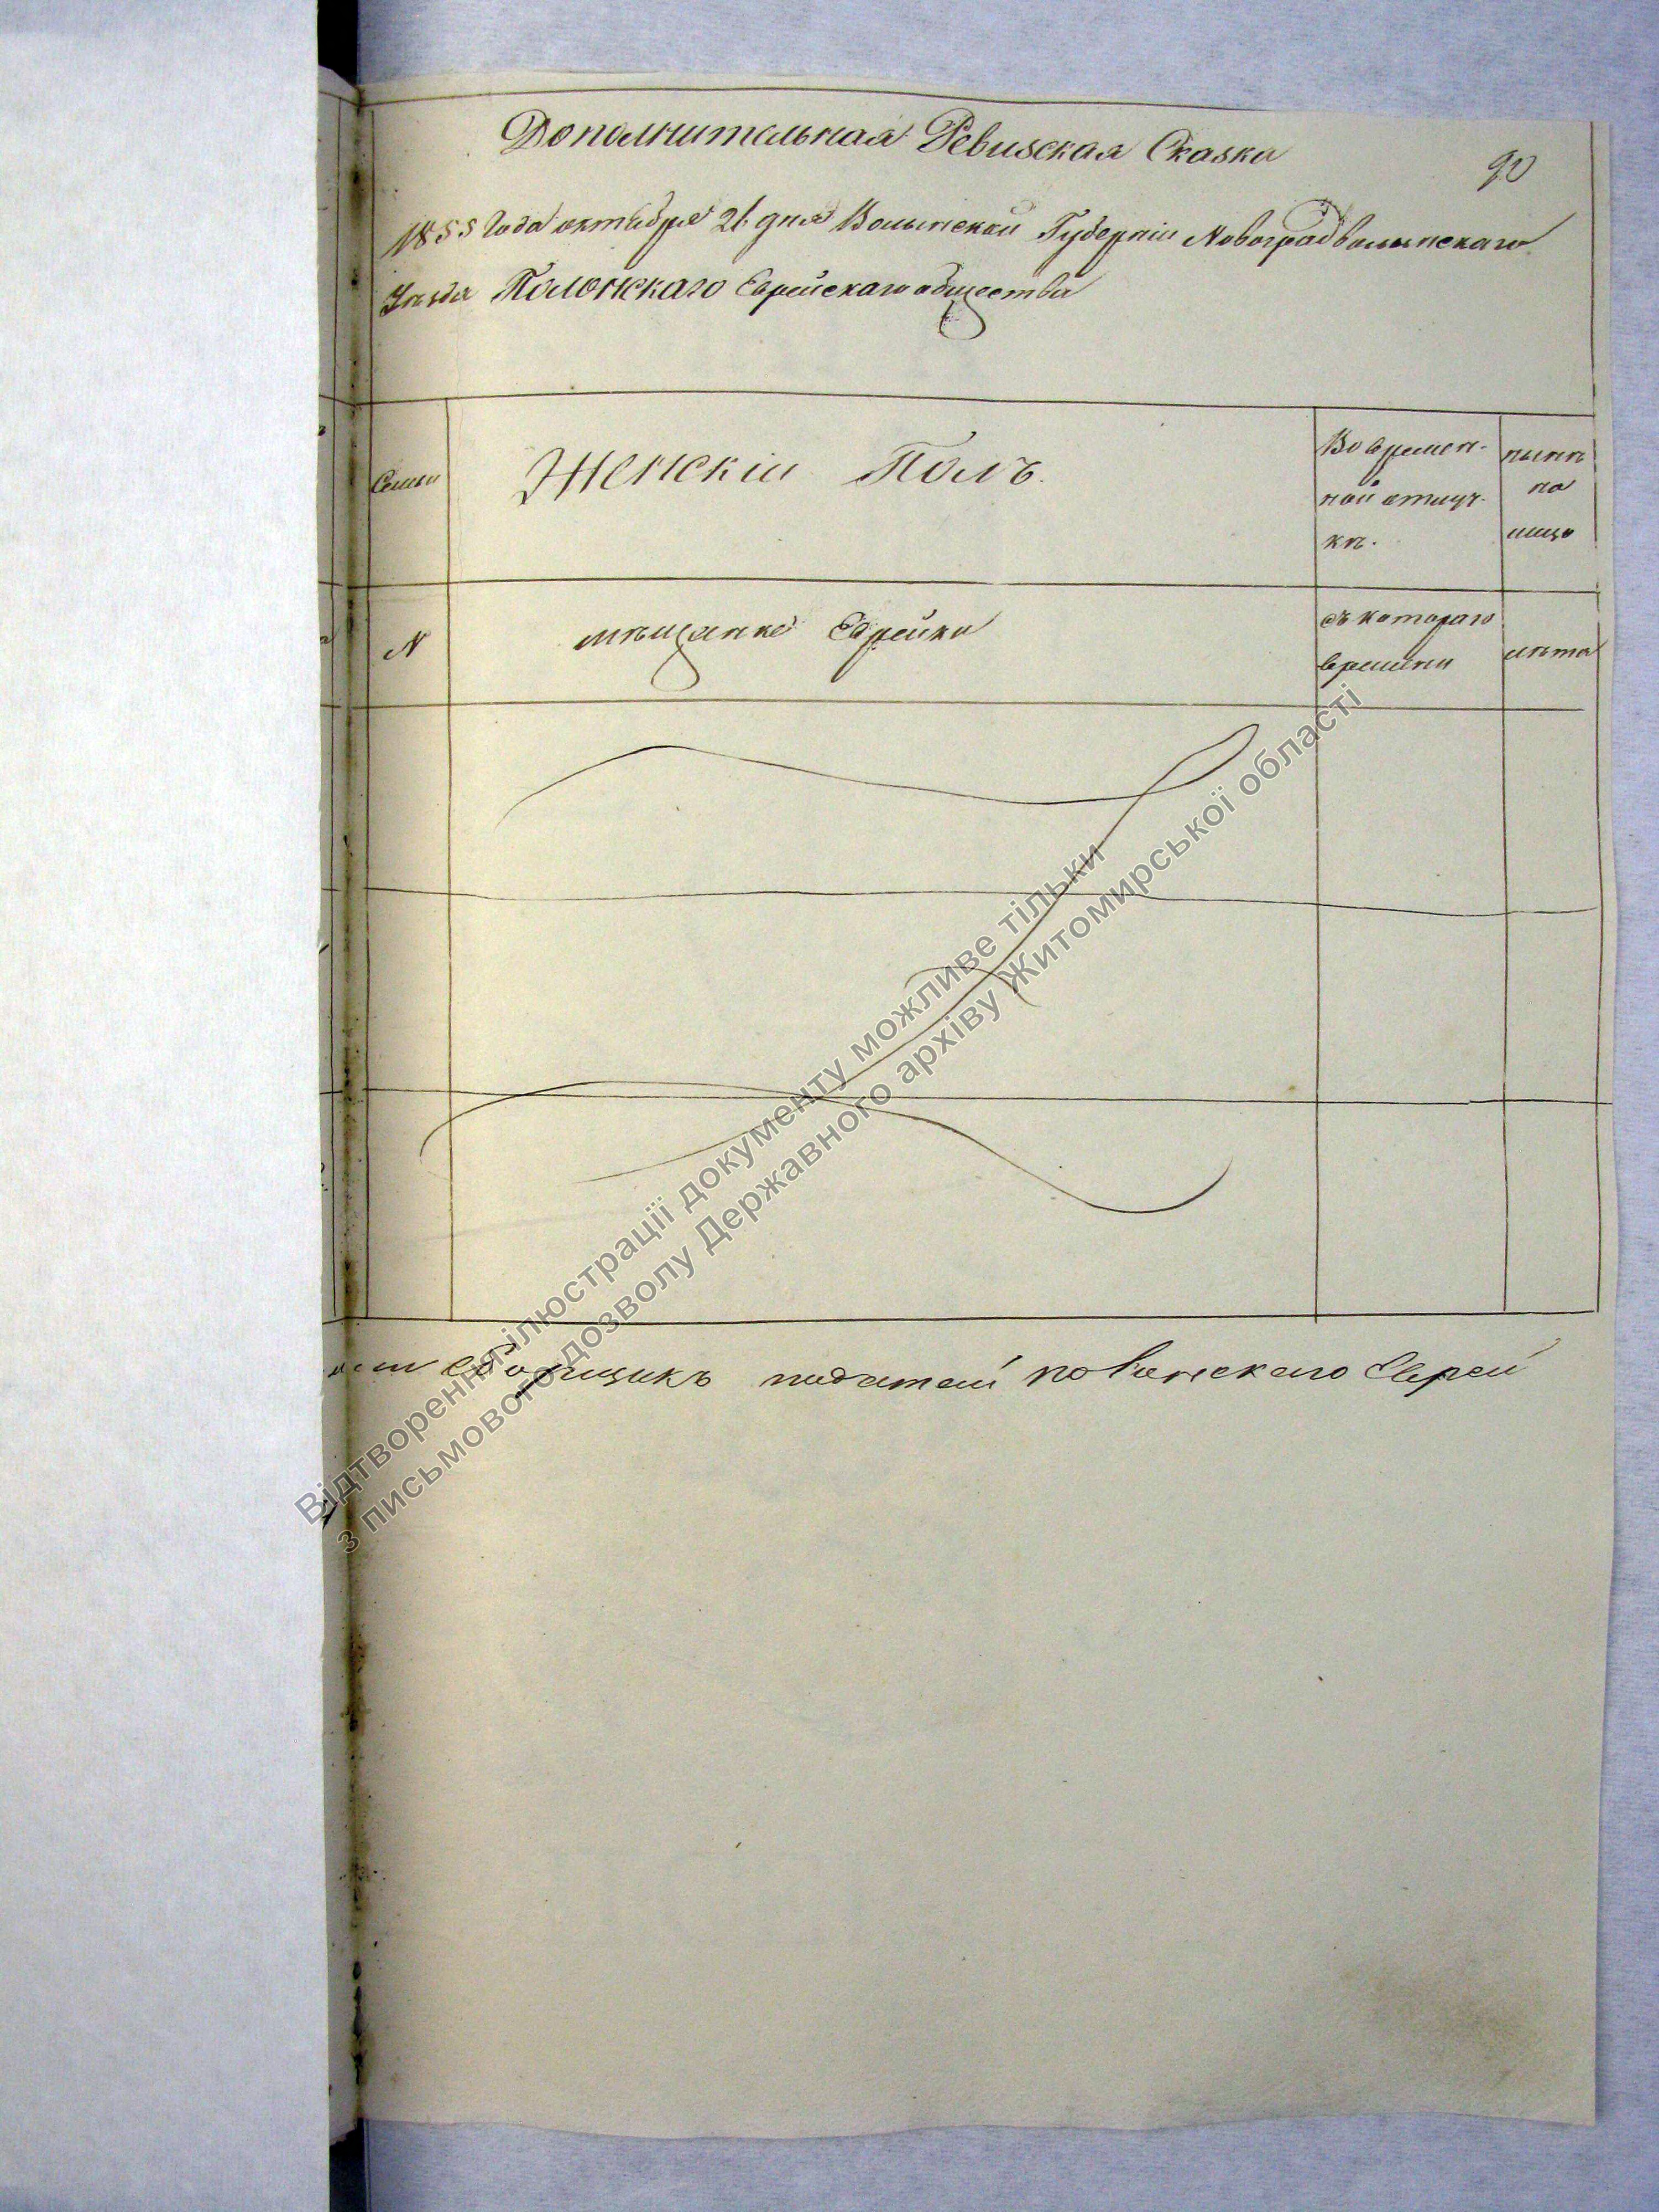 Дополнительная Ревизская Сказка
90
1855 Года октября 21 дня Волынской Губерніи Новоградволынскаго
Уѣзда Полонскаго Еврейскаго общества
Семьи
Женскій Полъ.
Во времен-
ной отлуч-
кѣ.
нынѣ
на
лицо
N
мѣщанке Еврейки
съ котораго
времѣни
лѣта
сборщикъ податей Еврей
Відтворення ілюстрації документу можливе тільки
з письмового дозволу Державного архіву Житомирської області